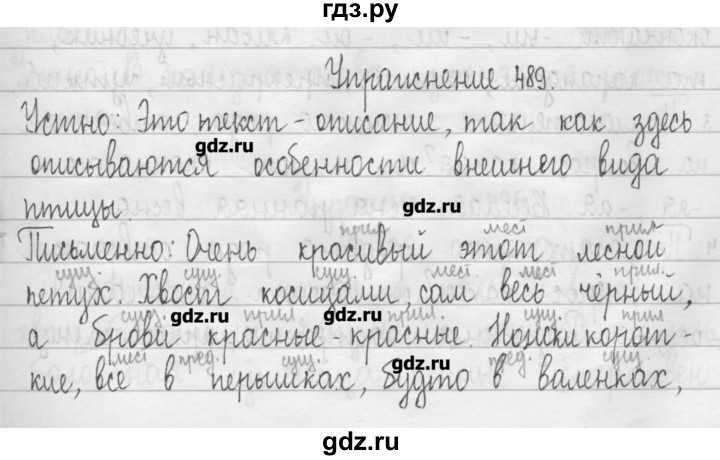 гдз.ру
Упражнение 489.
Устно: Это текст - описание, так как здесь
gdz.ru
описываются особенности внешнего вида
gdz.ru
птицы.
прил. мест прил.
Письменно: Очень красивый этот лесной
сущ. сущ. сущ. мест мест прил.
петух. Хвост косицами, сам весь чёрный,
gdz.ru gdz.ru
сущ. прил. прил. сущ. прил.
а брови красные - красные. Ножки корот -
мест пред. сущ. пред. сущ.
кие, все в перышках, будто в валенках,
gdz.ru
gdz.ru